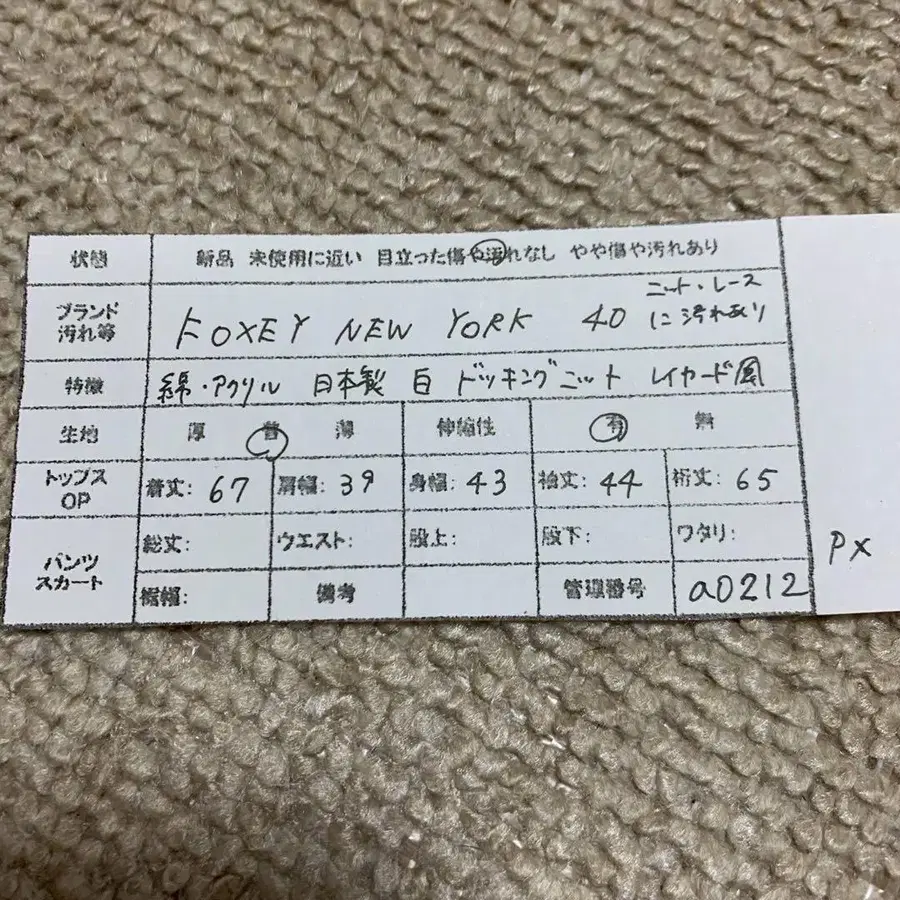 状態 新品 未使用に近い 目立った傷や汚れなし やや傷や汚れあり
ブランド 汚れ等 FOXEY NEW YORK 40 ニット・レースに汚れあり
特徴 綿・アクリル 日本製 白 ドッキングニット レイヤード風
生地 厚 普 薄 伸縮性 有 無
トップス OP 着丈: 67 肩幅: 39 身幅: 43 袖丈: 44 裄丈: 65
パンツ スカート 総丈: ウエスト: 股上: 股下: ワタリ:
裾幅: 備考 管理番号 a0212
PX